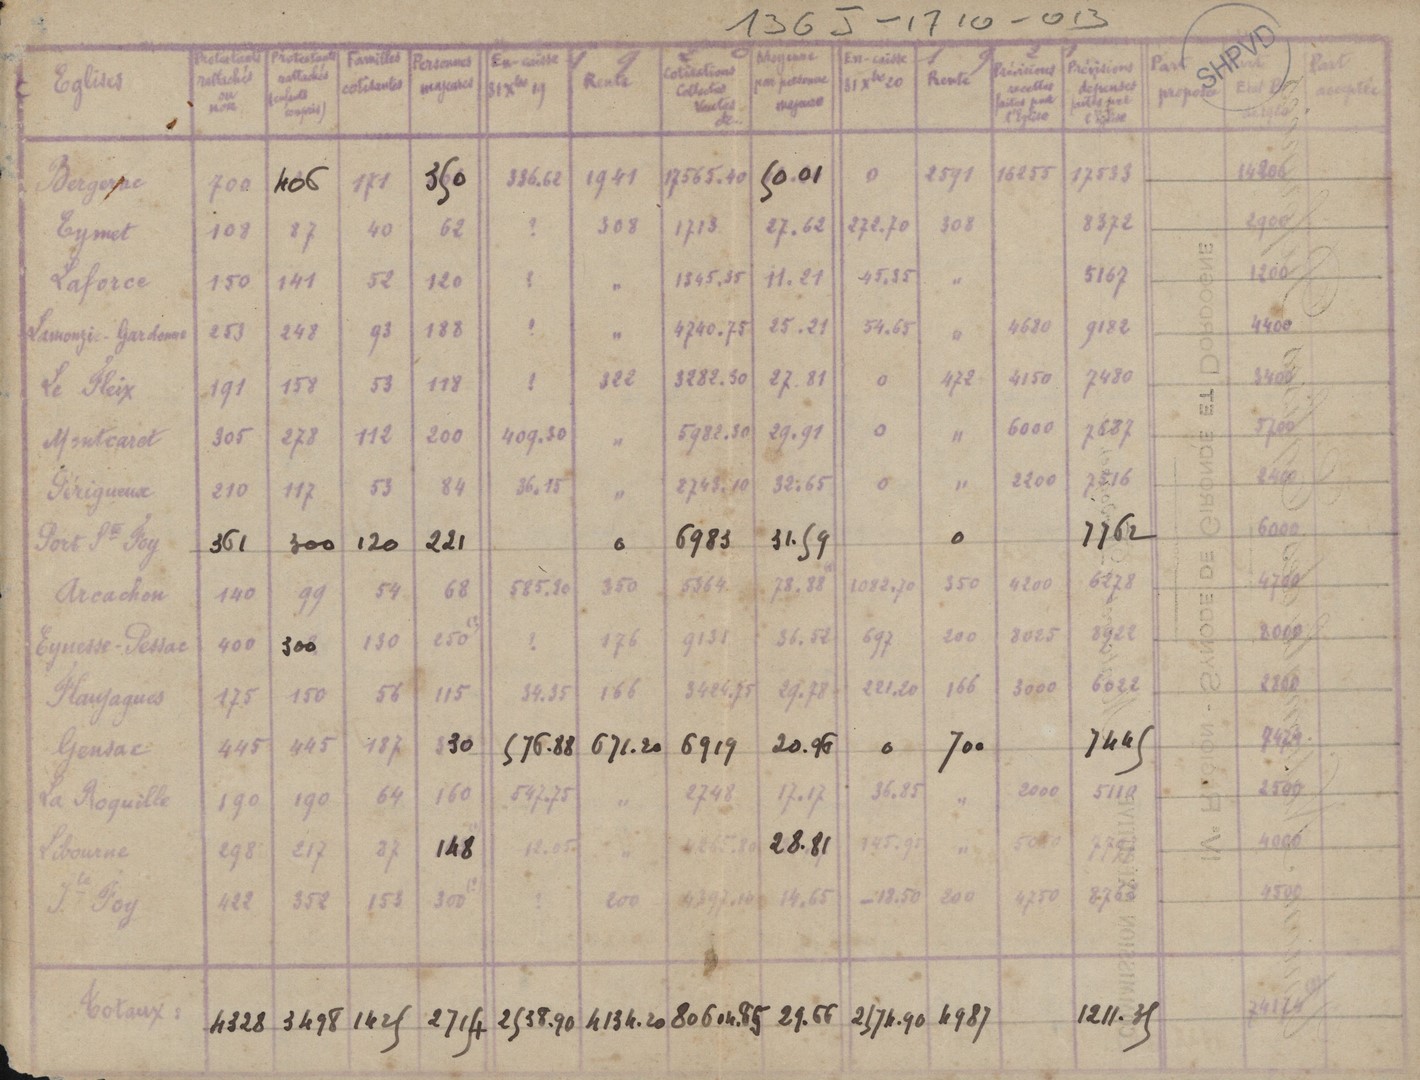 136 J - 1710 - 013
SHPVD
1 9 2 0
1 9 2 1
Eglises | Protestants rattachés ou non | Protestants rattachés (enfants compris) | Familles cotisantes | Personnes majeures | En-caisse 31 Xbre 19 | Rente | Cotisations Collectes Ventes &c. | Moyenne par personne majeure | En-caisse 31 Xbre 20 | Rente | Prévisions recettes faites par l'Eglise | Prévisions dépenses faites par l'Eglise | Part proposée | Part | Part acceptée
Bergerac 700 406 171 350 336.62 1941 17565.40 50.01 0 2591 16255 17533 14806
Eymet 108 87 40 62 ? 308 1713 27.62 272.70 308 8372 2900
Laforce 150 141 52 120 ? " 1345.35 11.21 45.35 " 5167 1200
Lamonzie-Gardonne 253 248 93 188 ? " 4740.75 25.21 54.65 " 4680 9182 4400
Le Fleix 191 158 53 118 ? 322 3282.30 27.81 0 472 4150 7480 3400
Montcaret 305 278 112 200 409.30 " 5982.30 29.91 0 " 6000 7687 5700
Périgueux 210 117 53 84 36.15 " 2743.10 32.65 0 " 2200 7516 2400
Port Ste Foy 361 300 120 221 0 6983 31.59 0 7762 6000
Arcachon 140 99 54 68 585.30 350 5364 78.88 1082.70 350 4200 6278 4700
Eynesse-Pessac 400 300 130 250 ? 176 9131 36.52 697 200 8025 8922 8000
Flaujagues 175 150 56 115 34.35 166 3424.75 29.78 221.20 166 3000 6022 2800
Gensac 445 445 187 330 576.88 671.20 6919 20.96 0 700 7445 7424
La Roquille 190 190 64 160 547.75 " 2748 17.17 36.85 " 2000 5110 2500
Libourne 298 217 87 148 12.05 " 4265.80 28.81 145.95 " 4000
Ste Foy 422 352 153 300 ? 200 4397.10 14.65 -18.50 200 4750 8763 4500
Totaux : 4328 3498 1425 2714 2538.90 4134.20 80604.85 29.66 2574.90 4987 1211.35 74124
IVe RÉGION - SYNODE DE GIRONDE ET DORDOGNE
COMMISSION EXÉCUTIVE